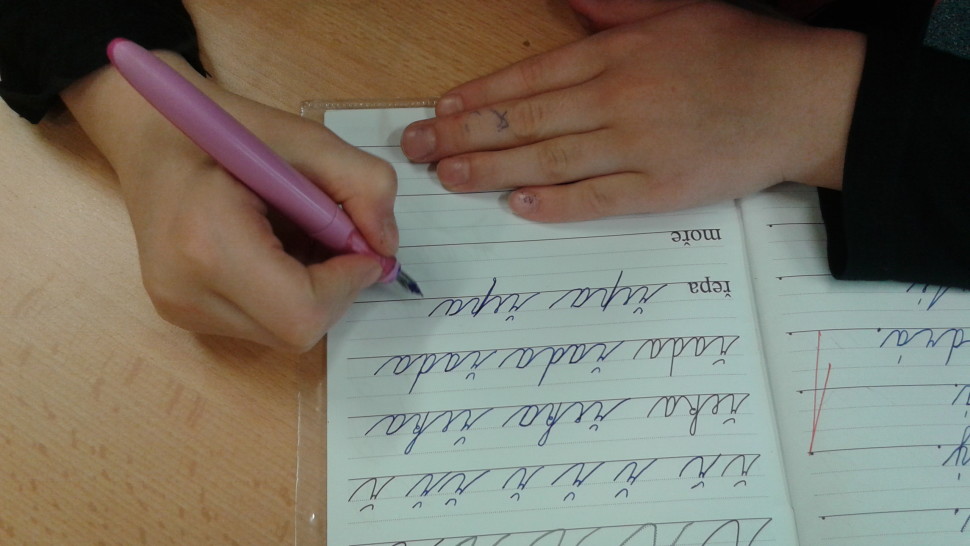 ř ř ř ř ř ř ř ř
řeka řeka řeka
řada řada řada
řepa řepa řepa
moře